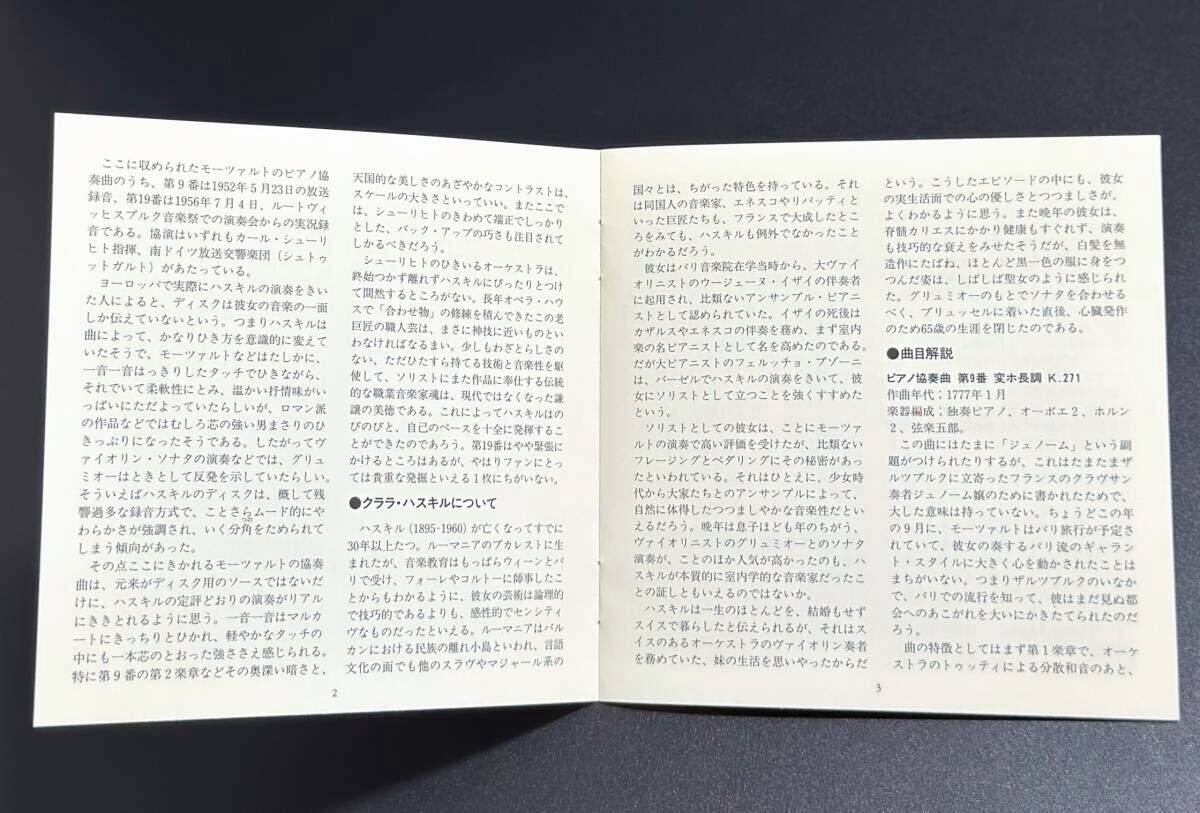 ここに収められたモーツァルトのピアノ協
奏曲のうち、第9番は1952年5月23日の放送
録音、第19番は1956年7月4日、ルートヴィ
ッヒスブルク音楽祭での演奏会からの実況録
音である。協演はいずれもカール・シューリ
ヒト指揮、南ドイツ放送交響楽団（シュトゥ
ットガルト）があたっている。
ヨーロッパで実際にハスキルの演奏をきい
た人によると、ディスクは彼女の音楽の一面
しか伝えていないという。つまりハスキルは
曲によって、かなりひき方を意識的に変えて
いたそうで、モーツァルトなどはたしかに、
一音一音はっきりしたタッチでひきながら、
それでいて柔軟性にとみ、温かい抒情味がい
っぱいにただよっていたらしいが、ロマン派
の作品などではむしろ芯の強い男まさりのひ
きっぷりになったそうである。したがってヴ
ァイオリン・ソナタの演奏などでは、グリュ
ミオーはときとして反発を示していたらしい。
そういえばハスキルのディスクは、概して残
響過多な録音方式で、ことさらムード的にや
わらかさが強調され、いく分角をためられて
つの
しまう傾向があった。
その点ここにきかれるモーツァルトの協奏
曲は、元来がディスク用のソースではないだ
けに、ハスキルの定評どおりの演奏がリアル
にききとれるように思う。一音一音はマルカ
ートにきっちりとひかれ、軽やかなタッチの
中にも一本芯のとおった強ささえ感じられる。
特に第9番の第2楽章などその奥深い暗さと、
2
天国的な美しさのあざやかなコントラストは、
スケールの大きさといっていい。またここで
は、シューリヒトのきわめて端正でしっかり
とした、バック・アップの巧さも注目されて
しかるべきだろう。
シューリヒトのひきいるオーケストラは、
終始つかず離れずハスキルにぴったりとつけ
て間然するところがない。長年オペラ・ハウ
スで「合わせ物」の修練を積んできたこの老
巨匠の職人芸は、まさに神技に近いものとい
わなければなるまい。少しもわざとらしさの
ない、ただひたすら持てる技術と音楽性を駆
使して、ソリストにまた作品に奉仕する伝統
的な職業音楽家魂は、現代ではなくなった謙
譲の美徳である。これによってハスキルはの
びのびと、自己のペースを十全に発揮するこ
とができたのであろう。第19番はやや緊張に
かけるところはあるが、やはりファンにとっ
ては貴重な発掘といえる1枚にちがいない。
●クララ・ハスキルについて
ハスキル（1895-1960）が亡くなってすでに
30年以上たつ。ルーマニアのブカレストに生
まれたが、音楽教育はもっぱらウィーンとパ
リで受け、フォーレやコルトーに師事したこ
とからもわかるように、彼女の芸術は論理的
で技巧的であるよりも、感性的でセンシティ
ヴなものだったといえる。ルーマニアはバル
カンにおける民族の離れ小島といわれ、言語
文化の面でも他のスラヴやマジャール系の
国々とは、ちがった特色を持っている。それ
は同国人の音楽家、エネスコやリパッティと
いった巨匠たちも、フランスで大成したとこ
ろをみても、ハスキルも例外でなかったこと
がわかるだろう。
彼女はパリ音楽院在学当時から、大ヴァイ
オリニストのウージェーヌ・イザイの伴奏者
に起用され、比類ないアンサンブル・ピアニ
ストとして認められていた。イザイの死後は
カザルスやエネスコの伴奏を務め、まず室内
楽の名ピアニストとして名を高めたのである。
だが大ピアニストのフェルッチョ・ブゾーニ
は、バーゼルでハスキルの演奏をきいて、彼
女にソリストとして立つことを強くすすめた
という。
ソリストとしての彼女は、ことにモーツァ
ルトの演奏で高い評価を受けたが、比類ない
フレージングとペダリングにその秘密があっ
たといわれている。それはひとえに、少女時
代から大家たちとのアンサンブルによって、
自然に体得したつつましやかな音楽性だとい
えるだろう。晩年は息子ほども年のちがう、
ヴァイオリニストのグリュミオーとのソナタ
演奏が、ことのほか人気が高かったのも、ハ
スキルが本質的に室内学的な音楽家だったこ
との証しともいえるのではないか。
ハスキルは一生のほとんどを、結婚もせず
スイスで暮らしたと伝えられるが、それはス
イスのあるオーケストラのヴァイオリン奏者
を務めていた、妹の生活を思いやったからだ
3
という。こうしたエピソードの中にも、彼女
の実生活面での心の優しさとつつましさが、
よくわかるように思う。また晩年の彼女は、
脊髄カリエスにかかり健康もすぐれず、演奏
も技巧的な衰えをみせたそうだが、白髪を無
造作にたばね、ほとんど黒一色の服に身をつ
つんだ姿は、しばしば聖女のように感じられ
た。グリュミオーのもとでソナタを合わせる
べく、ブリュッセルに着いた直後、心臓発作
のため65歳の生涯を閉じたのである。
●曲目解説
ピアノ協奏曲 第9番 変ホ長調 K.271
作曲年代；1777年1月
楽器編成；独奏ピアノ、オーボエ2、ホルン
2、弦楽五部。
この曲にはたまに「ジュノーム」という副
題がつけられたりするが、これはたまたまザ
ルツブルクに立寄ったフランスのクラヴサン
奏者ジュノーム嬢のために書かれたためで、
大した意味は持っていない。ちょうどこの年
の9月に、モーツァルトはパリ旅行が予定さ
れていて、彼女の奏するパリ流のギャラン
ト・スタイルに大きく心を動かされたことは
まちがいない。つまりザルツブルクのいなか
で、パリでの流行を知って、彼はまだ見ぬ都
会へのあこがれを大いにかきたてられたのだ
ろう。
曲の特徴としてはまず第1楽章で、オーケ
ストラのトゥッティによる分散和音のあと、